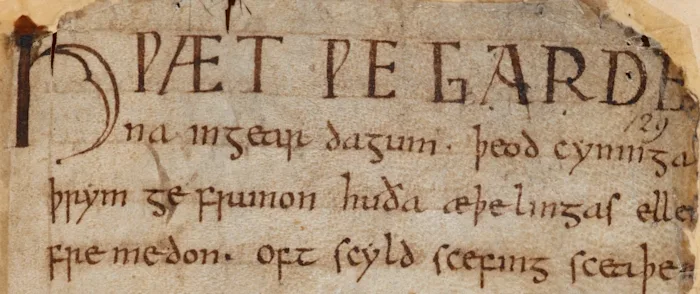 HǷÆT ǷE GARDE
na ingear dagum. þeod cyninga
þrym ge frunon huða æþelingas elle
fre medon. oft scyld scefing sceaþe
129